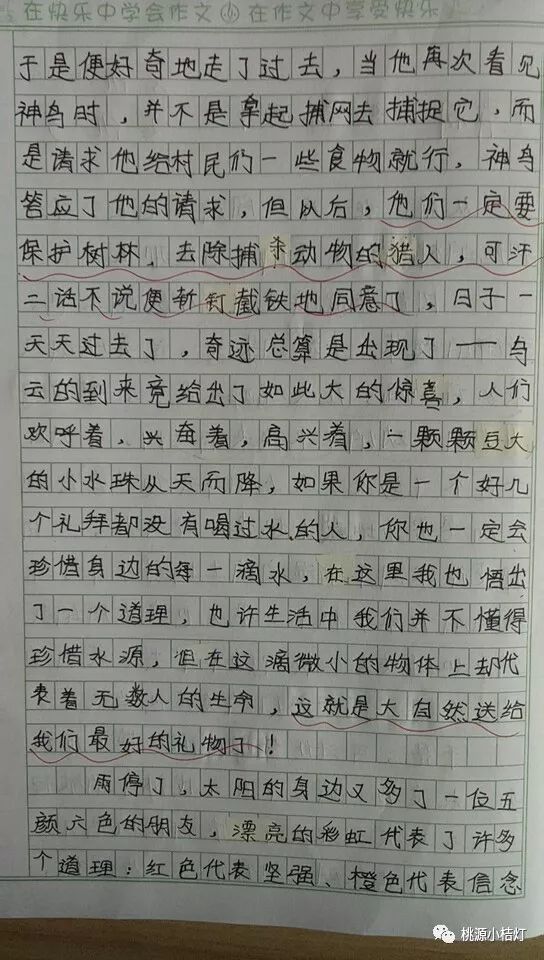 在快乐中学会作文 在作文中享受快乐
于是便好奇地走了过去，当他再次看见
神鸟时，并不是拿起捕网去捕捉它，而
是请求他给村民们一些食物就行，神鸟
答应了他的请求，但从后，他们一定要
保护树林、去除捕杀动物的猎人，可汗
二话不说便斩钉截铁地同意了，日子一
天天过去了，奇迹总算是出现了——乌
云的到来竟给出了如此大的惊喜，人们
欢呼着，兴奋着，高兴着，一颗颗豆大
的小水珠从天而降，如果你是一个好几
个礼拜都没有喝过水的人，你也一定会
珍惜身边的每一滴水，在这里我也悟出
了一个道理，也许生活中我们并不懂得
珍惜水源，但在这滴微小的物体上却代
表着无数人的生命，这就是大自然送给
我们最好的礼物了！
雨停了，太阳的身边又多了一位五
颜六色的朋友，漂亮的彩虹代表了许多
个道理：红色代表坚强、橙色代表信念
桃源小桔灯